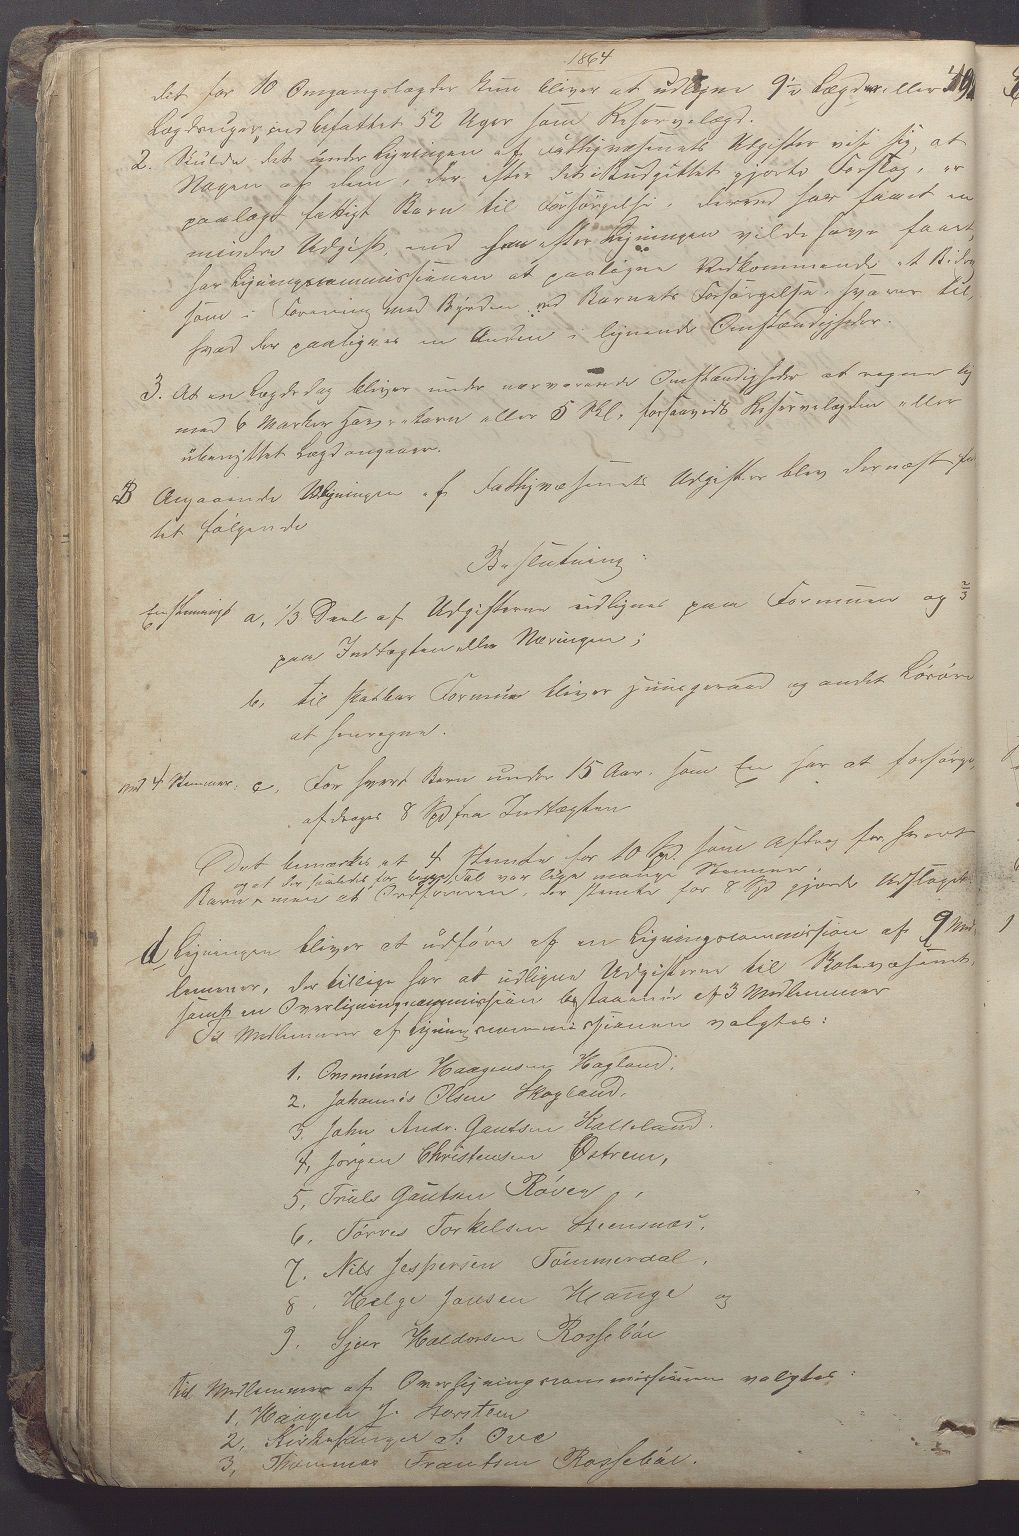 1864
det for 10 Omgangslægder kun bliver at udligne 9½ Lægder eller 492
Lægdsuger, ind befattet 52 Uger som Reservelægd.
2. Skulde det under Ligningen af Fattigvæsenets Udgifter vise sig, at
Nogen af dem, der efter det istudgittet gjorte Forslag, er
paalagt fattigt Barn til Forsørgelse, derved har faaet en
mindre Udgift, end han efter Ligningen vilde have faaet,
har Ligningscommissionen at paaligne Vedkommende et Bidrag
som i Forening med Byrden ved Barnets Forsørgelse, svarer til,
hvad der paalignes en Anden i lignende Omstændigheder.
3. At en Lægdsdag bliver under nærværende Omstændigheder at regne lig
med 6 Marker Havrekorn eller 5 Skl. forsaavidt Reservelægden eller
ubenyttet Lægd angaaer.
B Angaaende Udligningen af Fattigvæsenets Udgifter blev dernæst fat
tet følgende
Beslutning:
Enstemmigt a, 1/3 Deel af Udgifterne udlignes paa Formuen og 2/3
paa Indtægten eller Næringen;
b, til skatbar Formue bliver Huusgeraad og andet Løsøre
at henregne.
med 4 Stemmer. c, For hvert Barn under 15 Aar, som En har at forsørge,
afdrages 8 Spd fra Indtægten
Det bemærkes at 4 stemte for 10 Spd. som Afdrag for hvert
og at der saaledes for begge Tal var lige mange Stemmer;
Barn, men at Ordføreren, der stemte for 8 Spd gjorde Udslaget.
d Ligningen bliver at udføre af en Ligningscommission af 9 Med-
lemmer, der tillige har at udligne Udgifterne til Skolevæsenet
samt en Overligningscommission bestaaende af 3 Medlemmer
Til Medlemmer af Ligningscommissionen valgtes:
1. Ommund Haagensen Hagland.
2. Johannes Olsen Skogland.
3. John Andr. Gautsen Kalleland.
4, Jørgen Christensen Østrem,
5, Truls Gautsen Røven,
6. Tørres Torkelsen Steensnæs.
7. Nils Jespersen Tømmerdal.
8. Helge Jansen Hauge og
9. Sjur Haldorsen Rossebøe
Til Medlemmer af Overligningscommissionen valgtes:
1, Haagen J. Torsteen
2, Kirkesanger A. Ove
3, Thommas Frantsen Rossebøe.